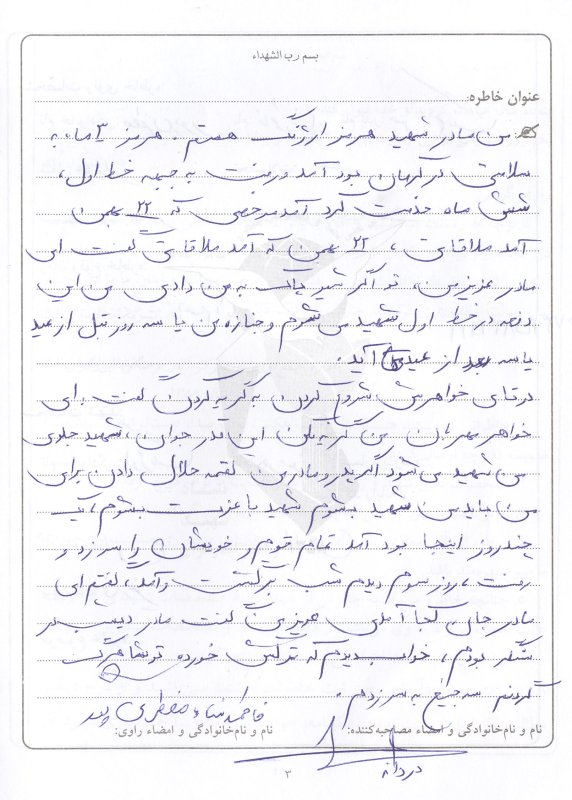 بسم رب الشهداء
عنوان خاطره:
من مادر شهید هرمز ارژنگ هستم. هرمز ۳ماه به
سلامتی در کرمان بود آمد و رفت به جبهه خط اول،
شش ماه خدمت کرد آمد مرخصی که ۲۲ بهمن
آمد ملاقات، ۲۲ بهمن که آمد ملاقاتی گفت ای
مادر عزیز من، تو اگر شیر پاک به من دادی من این
دفعه در خط اول شهید می شوم و جنازه من یا سه روز قبل از عید
یا سه بعد از عید می آید.
در جای خواهرش شروع کردن به گریه کردن گفت: ای
خواهر مهربان من گریه نکن این قدر جوان، شهید جلوی
من شهید می شود اگر پدر و مادر من لقمه حلال دادن برای
من باید من شهید بشوم شهید با عزت بشوم، یک
چند روز اینجا بود آمد تمام قوم و خویشان را سر زد و
رفت، روز سوم دیدم شب برگشت و آمد، گفتم ای
مادر جان کجا آمدی عزیز من گفت مادر دیشب در
سنگر بودم، خواب دیدم که ترکش خورده تو
گردنم سه جیغ به سر زدم.
فاطمه نساء پور
نام و نام‌خانوادگی و امضاء مصاحبه‌کننده:
نام و نام‌خانوادگی و امضاء راوی:
دردانه
۳